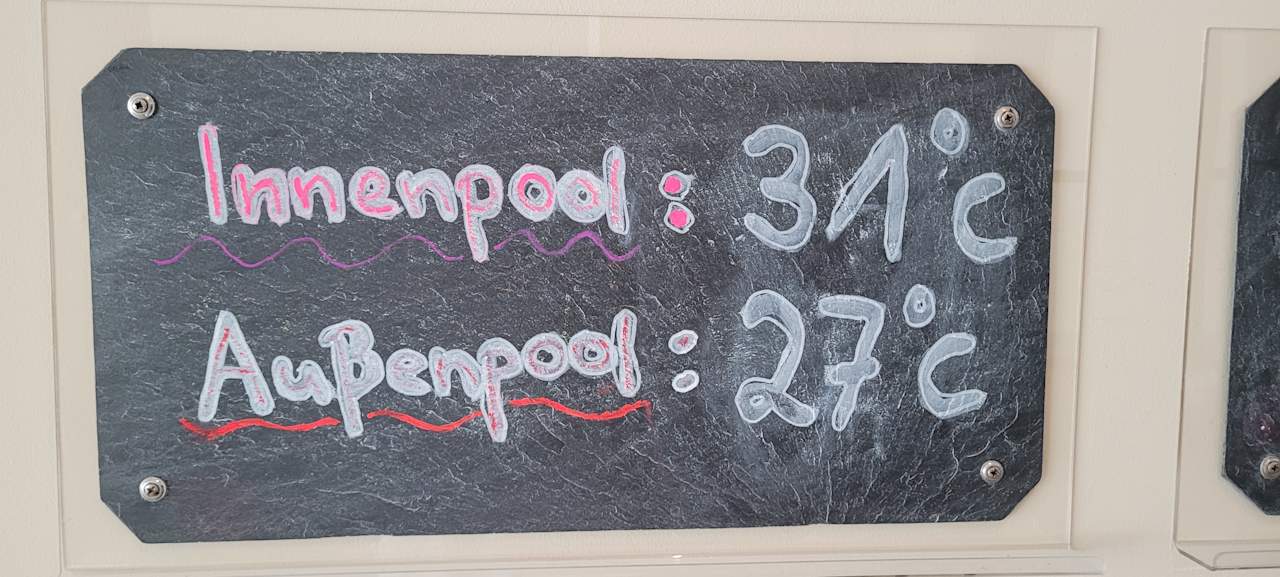 Innenpool: 31°C
Außenpool: 27°C